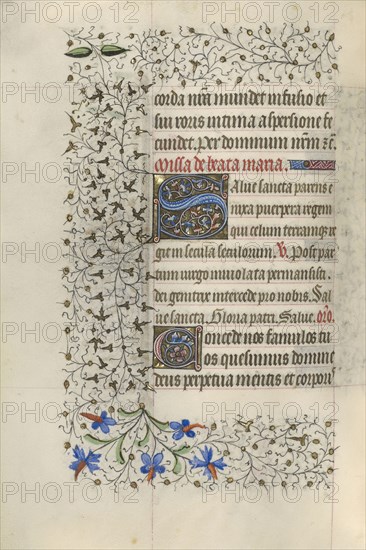 corda nr̄a mundet infusio et
sui roris intima aspersione fe
cundet. per dominum nr̄m zc̄.
Missa de beata maria.
Salve sancta parens e
nixa puerpera regem
qui celum terramqȝ re
git in secula seculorum. V̷. Post par
tum virgo inviolata permansisti.
dei genitrix intercede pro nobis. Sal
ve sancta. Gloria patri. Salve. oro̅.
Concede nos famulos tu
os quesumus domine
deus perpetua mentis et corpori